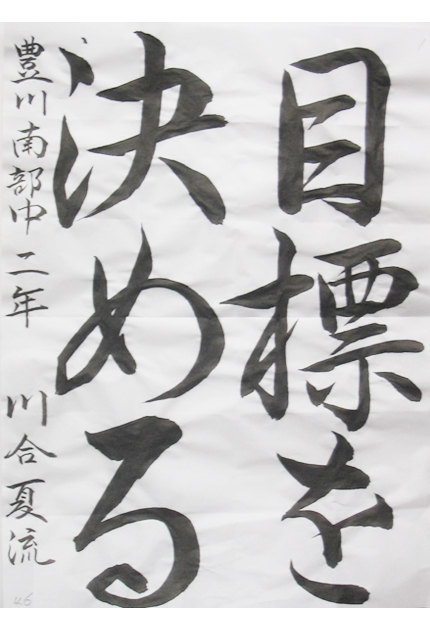 目標を
決める
豊川南部中二年 川合夏流